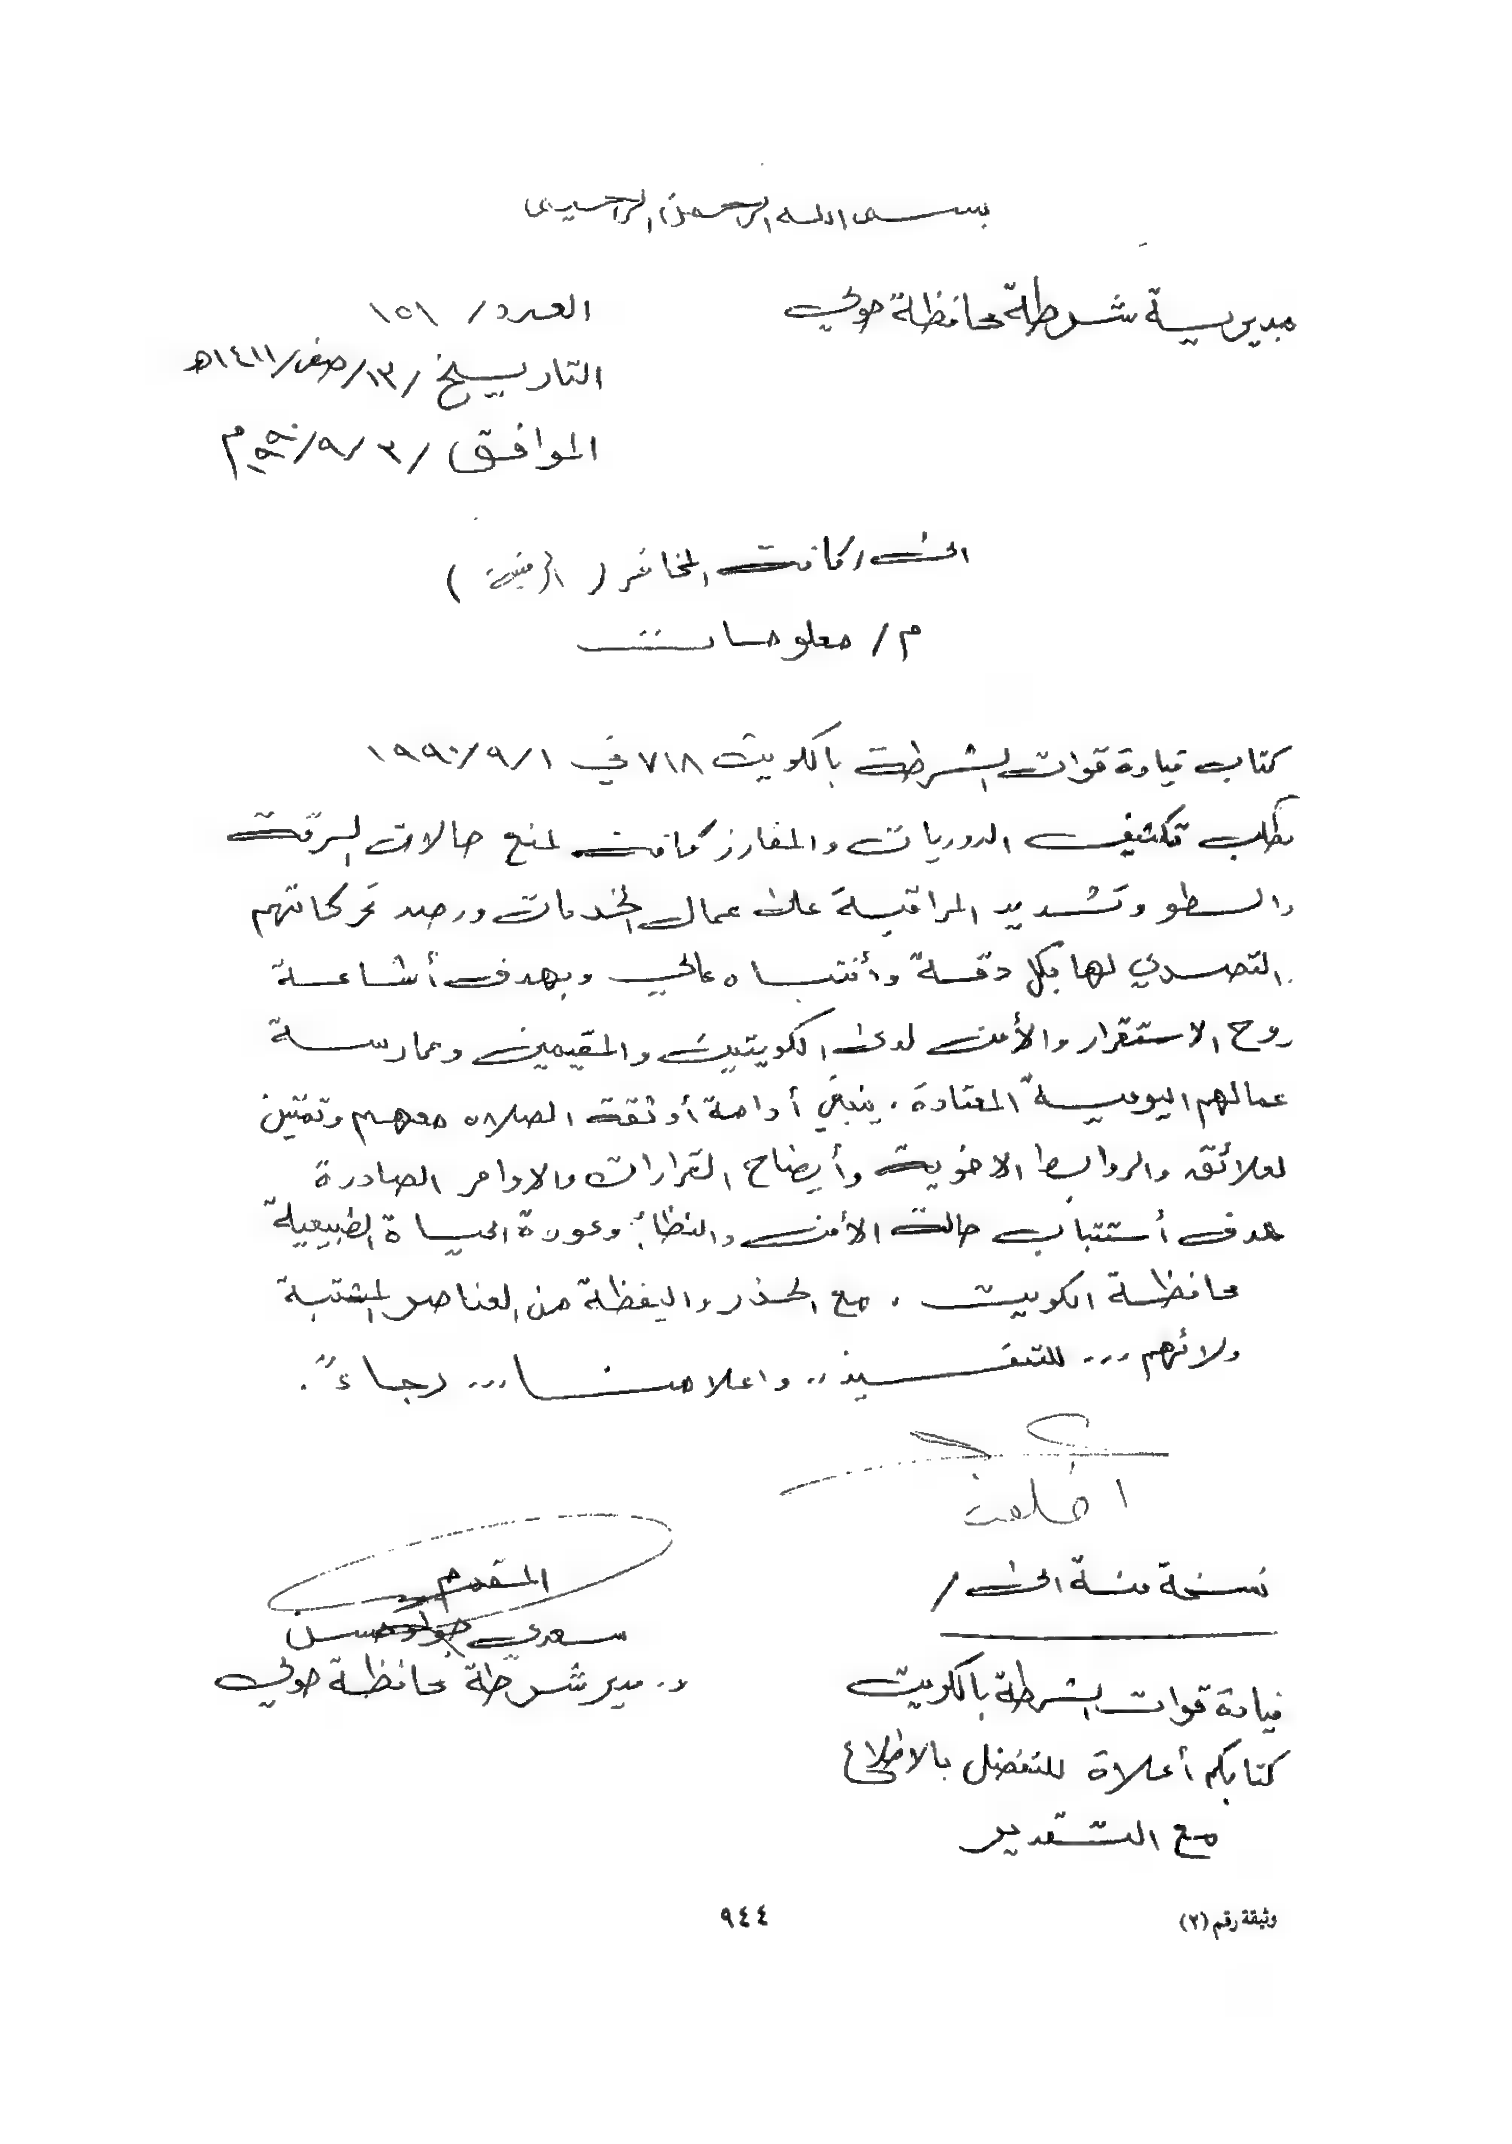 بسم الله الرحمن الرحيم
مديرية شرطة محافظة حولي
العدد/ ١٥١
التاريخ / ١٣/صفر/١٤١١هـ
الموافق / ٣ /٩/ ١٩٩٠م
الى / كافة المخافر ( الرميثية )
م/ معلومات
كتاب قيادة قوات الشرطة بالكويت ٧١٨ في ١ /٩/ ١٩٩٠
تكثيف الدوريات والمفارز كافة لمنع حالات السرقة
والسطو وتشديد المراقبة على عمال الخدمات ورصد تحركاتهم
التصدي لها بكل دقة وأنتباه عالي وبهدف أشاعة
روح الاستقرار والأمن لدى الكويتيين والمقيمين وممارسة
عمالهم اليومية المعتادة . ينبغي أدامة أوثقة الصلاه معهم وتمتين
لعلائق والروابط الاخوية وأيضاح القرارات والاوامر الصادرة
هدف أستتباب حالة الأمن والنظام وعودة الحياة الطبيعية
محافظة الكويت . مع الحذر واليقظة من العناصر المشتبة
ولائهم ... للتنفيذ .. واعلامنا ... رجاءً .
نسخة منة الى /
قيادة قوات الشرطة بالكويت
كتابكم أعلاة للتفضل بالاطلاع
مع التقدير
المقدم
سعدي جواد حسن
د. مدير شرطة محافظة حولي
وثيقة رقم (٢)
٩٤٤